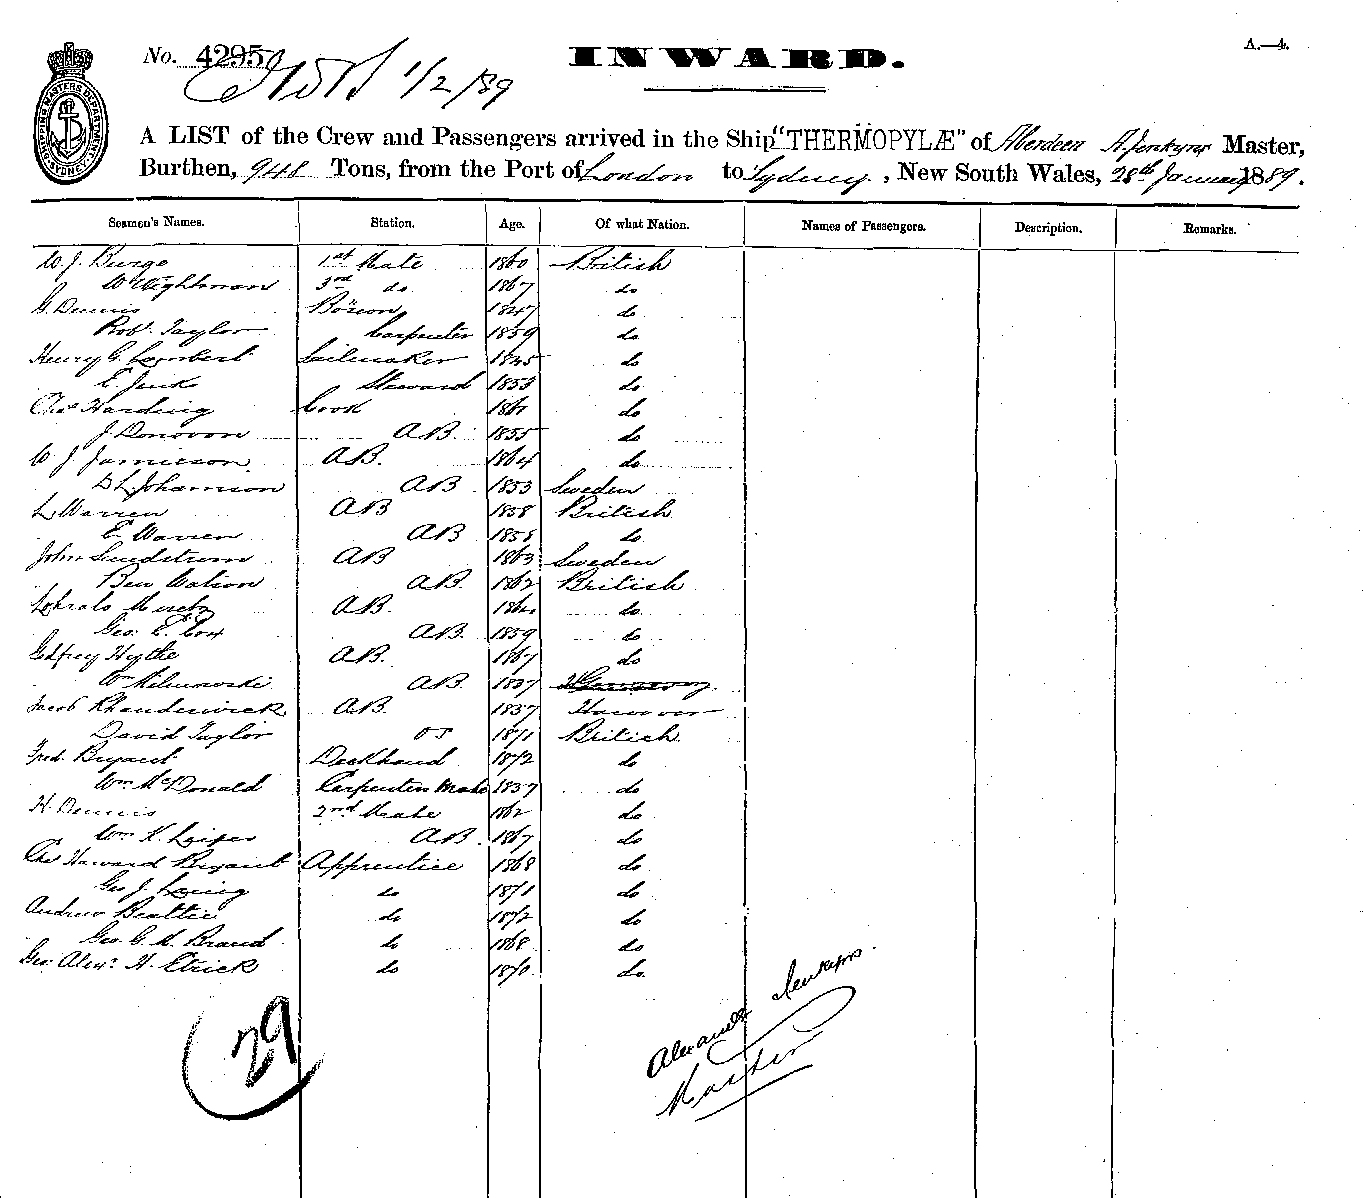 No. 42950 INWARD. A.—4.
1/2/89
A LIST of the Crew and Passengers arrived in the Ship "THERMOPYLÆ" of Aberdeen A. Jenkyns Master,
Burthen, 948 Tons, from the Port of London to Sydney, New South Wales, 28th January 1889.
Seamen's Names. Station. Age. Of what Nation. Names of Passengers. Description. Remarks.
W. J. Burge 1st Mate 1860 British
W Wightman 3rd do 1867 do
G. Dennis Bosun 1847 do
Robt. Taylor Carpenter 1859 do
Henry G. Lambert Sailmaker 1845 do
E. Jenks Steward 1853 do
Chas Harding Cook 1861 do
J. Donovon AB. 1855 do
W J Jamieson AB. 1864 do
Johanson AB 1853 Sweden
L Warren AB 1858 British
E. Warren AB 1858 do
John Lundstrom AB 1863 Sweden
Ben Watson AB. 1862 British
AB. 1864 do
Geo. E. Cox AB. 1859 do
Godfrey Hythe AB. 1867 do
Wm Milnowski AB. 1837 Germany
Jacob AB. 1837 Hanover
David Taylor OS 1871 British
Fred. Bryant Deckhand 1872 do
Wm McDonald Carpenters Mate 1837 do
H. Dennis 2nd Mate 1862 do
Wm K. Leiper AB. 1867 do
Chas Howard Bryant Apprentice 1868 do
Geo J. Laing do 1871 do
Andrew Beattie do 1872 do
Geo. G. M. Brand do 1868 do
Geo. Alexr. H. Strick do 1870 do.
29
Alexander Jenkyns
Master
SHIPPING MASTERS DEPARTMENT SYDNEY